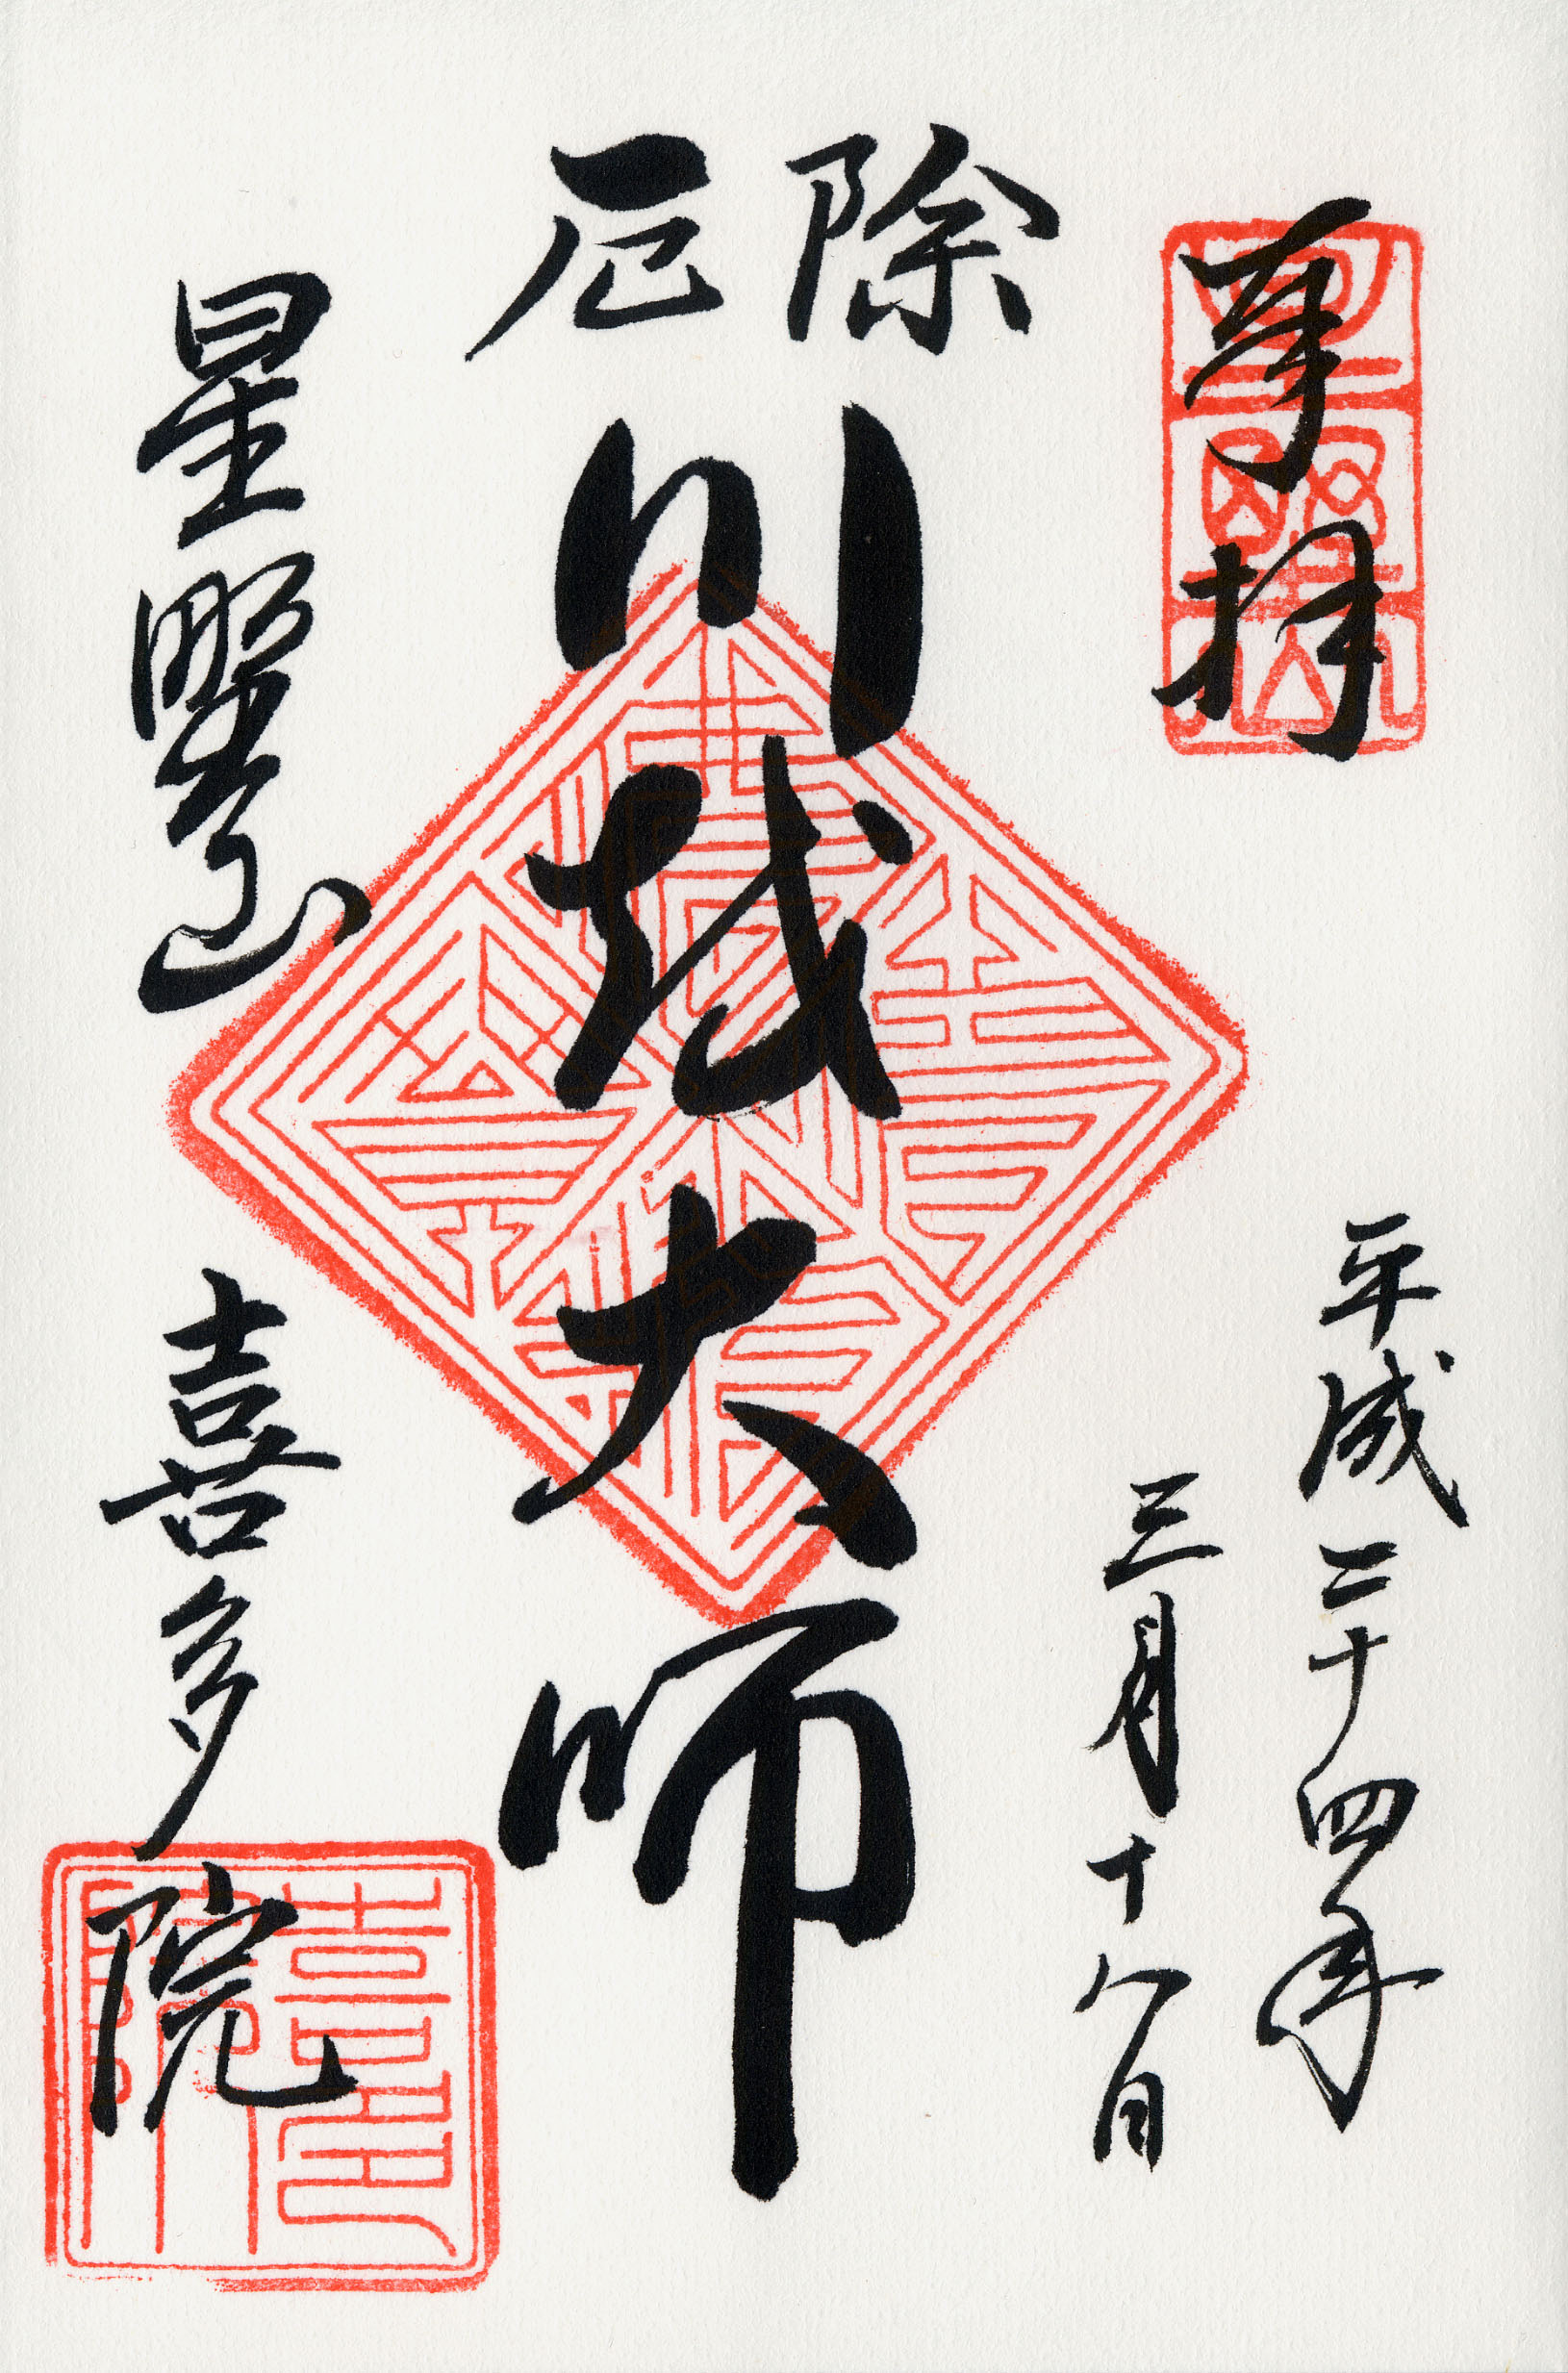 奉拝
平成二十四年
三月十八日
除厄
川越大師
星野山
喜多院
喜多院